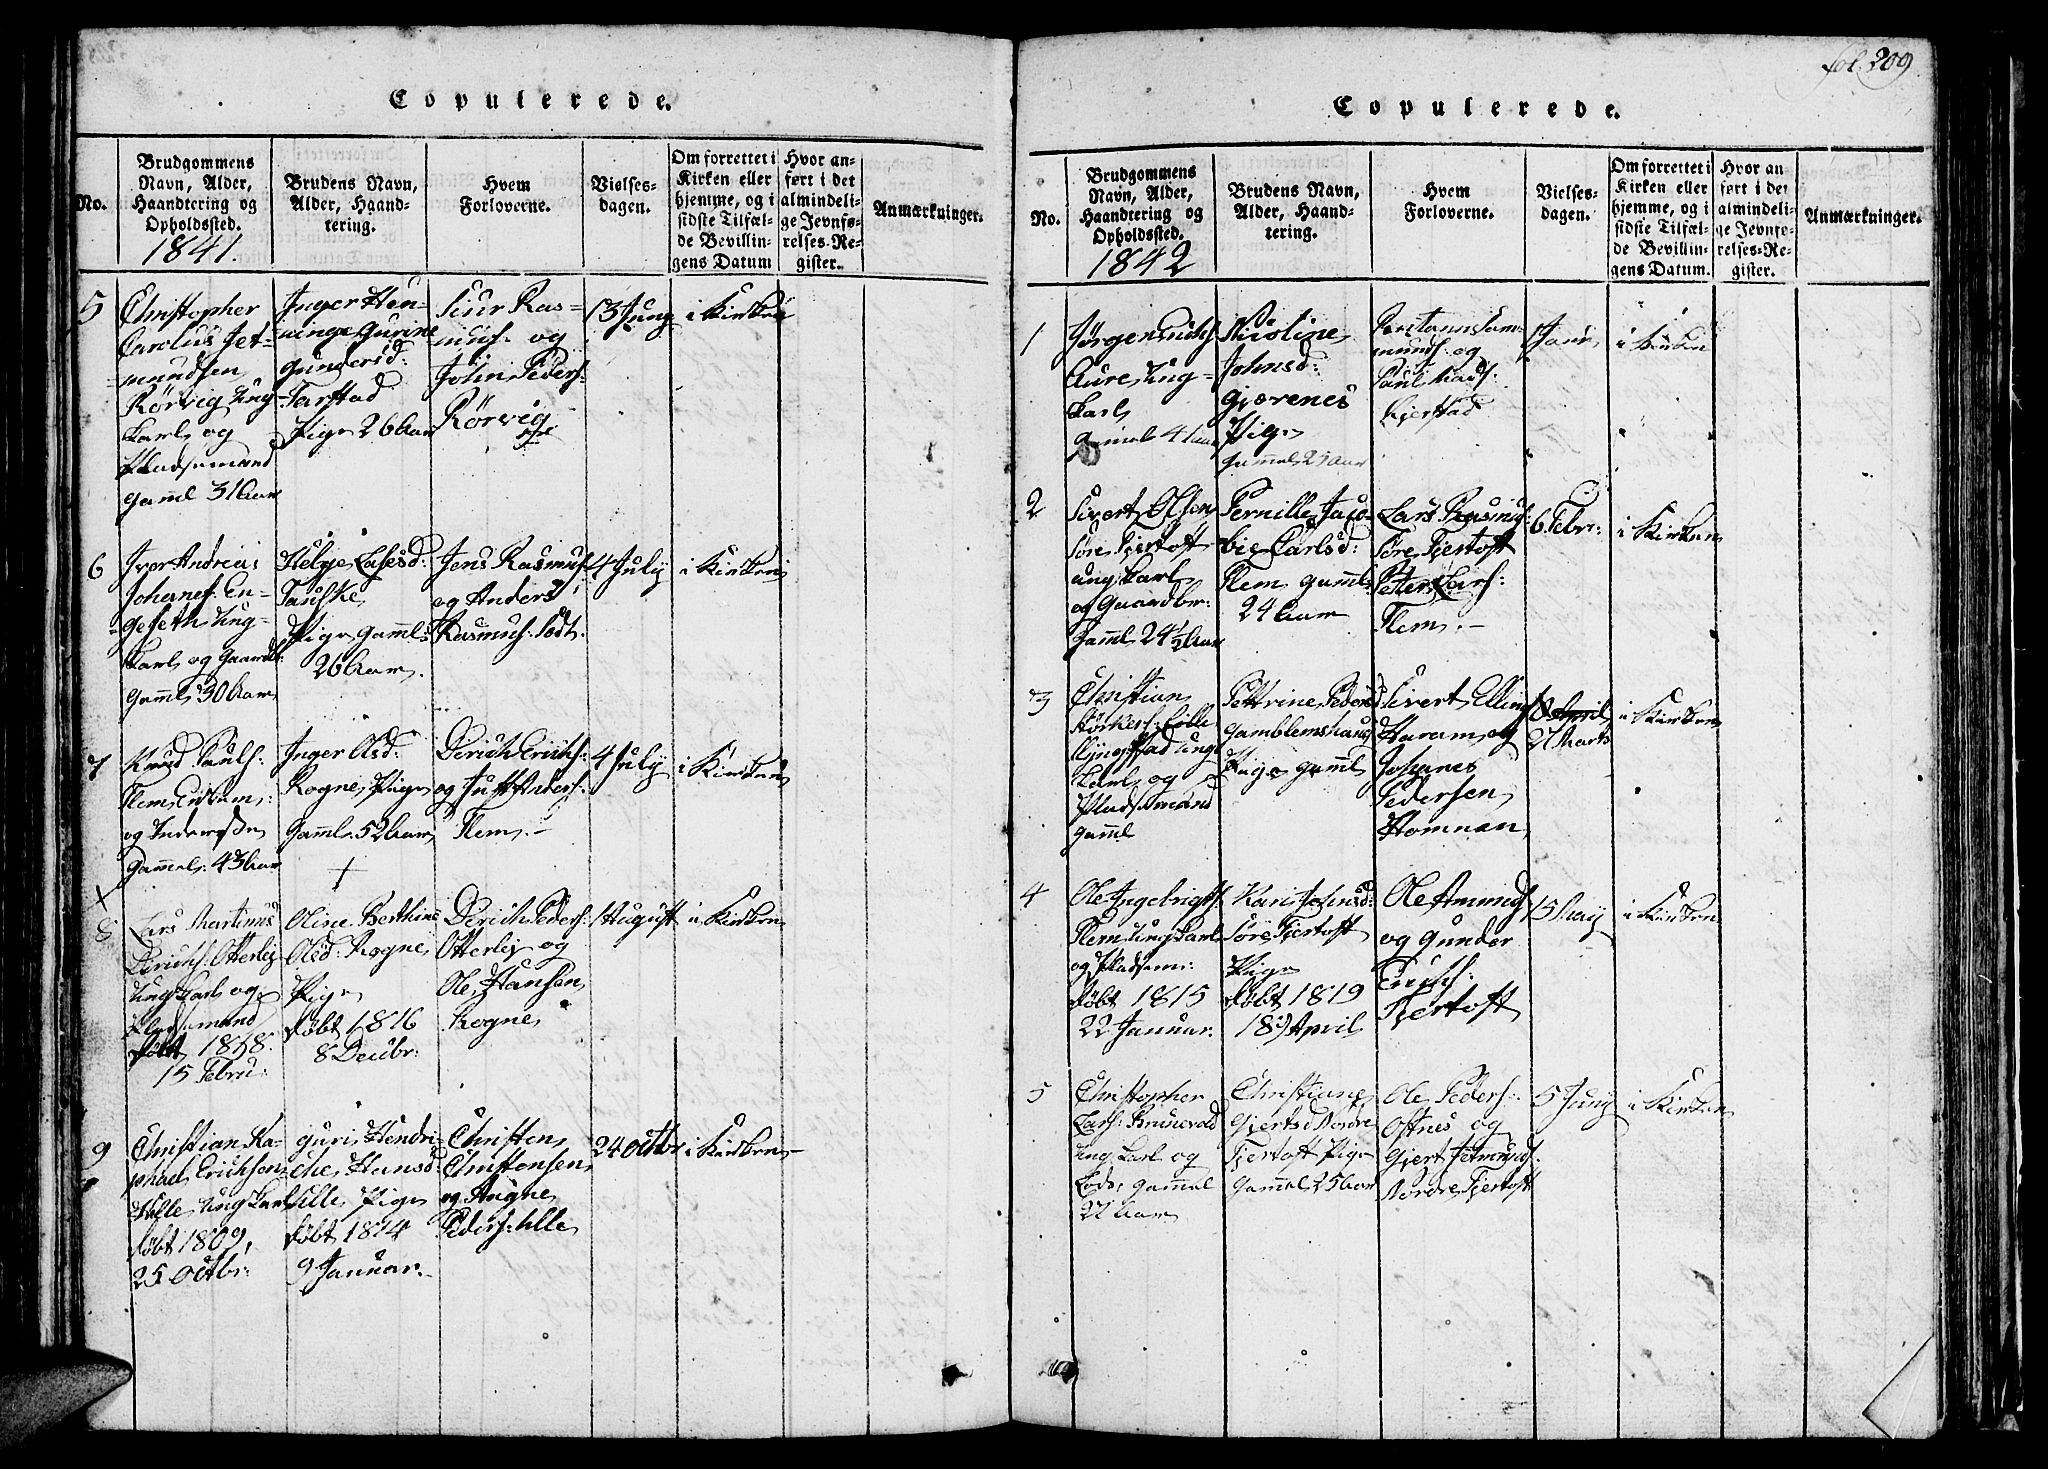 Copulerede.
No.
Brudgommens
Navn, Alder,
Haandtering og
Opholdssted.
1841.
Brudens Navn,
Alder, Haand-
tering.
Hvem
Forloverne.
Vielses-
dagen.
Om forrettet i
Kirken eller
hjemme, og i
sidste Tilfæl-
de Bevillin-
gens Datum
Hvor an-
ført i det
almindeli-
ge Jevnfø-
relses-Re-
gister.
Anmærkninger.
5
Christopher
Carolus Jet-
mundsen
Rörvig Ung-
karl og
Pladsemand
gaml 31 Aar
Inger Hen-
ninge Gurine
Gundersd:
Tarstad
Pige 26 Aar
Siur Ras-
mus: og
John Peders:
Rørvig
13 Juny
i Kirken
6
Iver Andreas
Johannes: En-
geseth Ung-
karl og Gaardb:
gaml 30 Aar
Helge Lasesd:
Pige gaml:
26 Aar.
Jens Rasmus:
og Anders
Rasmus: Södt:
4 July
i Kirken
7
Knud Pauls:
Flem Enkem:
og Inderste
Gammel: 43 Aar
Inger Olsd:
Rogne, Pige
Gaml: 52 Aar
Dirich Erichs:
og Just Anders:
Flem.-
4 July
i Kirken
8
Lars Martinus
Dirichs: Otterlej
Ungkarl og
Pladsemand
født 1818.
15 Febru:
Oline Berthine
Olsd: Rogne
Pige
født 1816
8 Decbr:
Dirich Peders:
Otterlej og
Ole Hansen
Rogne
1 August
i Kirken
9
Christian Ra-
phael Erichsen
Ulle Ungkarl
født 1809,
25 Octbr:
Guri Hendri-
che Hansd:
Ulle Pige
født 1814
9 Januar.
Christen
Christensen
og Augne
Peders: Ulle
24 Octbr
i Kirken
fol. 209
Copulerede.
No.
Brudgommens
Navn, Alder,
Haandtering og
Opholdssted.
1842
Brudens Navn,
Alder, Haand-
tering.
Hvem
Forloverne.
Vielses-
dagen.
Om forrettet i
Kirken eller
hjemme, og i
sidste Tilfæl-
de Bevillin-
gens Datum.
Hvor an
ført i det
almindeli-
ge Jevnfø-
relses-Re-
gister.
Anmærkninger.
1
Aure Ung-
karl
gammel 41 aar
Nicoline
Johnsd:
Gjærenes
Pige
gammel 25 aar
og
Paul Mads:
Kjerstad
1 Janr
i Kirken
2
Sivert Olsen
Søre Fjertoft
ungkarl
og Gaardbr:
gaml 24½ Aar
Pernille Jaco-
bie Carlsd:
Flem gaml:
24 Aar
Lars Rasmus:
Søre Fjertoft
Peter Lars:
Flem.-
6 Febr:
i Kirken
3
Christian
Lyngstad ung
karl og
Pladsemand
gaml
Pettrine Peders
Gamblemshaug
Pige gaml
Sivert Elling
Haram og
Johanes
Pedersen
Hamnan
18 April
27 Marts
i Kirken
4
Ole Ingebrigts:
Flem Ungkarl
og Pladsem:
født 1815
22 Januar.
Kari Johnsd:
Søre Fjertoft
Pige
født 1819
18 April
Ole Amunds
og Gunder
Knuds:
Fjertoft
15 May
i Kirken
5
Christopher
Lars: Brunevold
Ungkarl og
Lods, gammel
27 Aar
Christiane
Gjertsd Nordre
Fjertoft Pige
Gammel 25 Aar
Ole Peders:
Ostnes og
Gjert Jetmunds:
Nordre Fjertoft
5 Juny
i Kirken